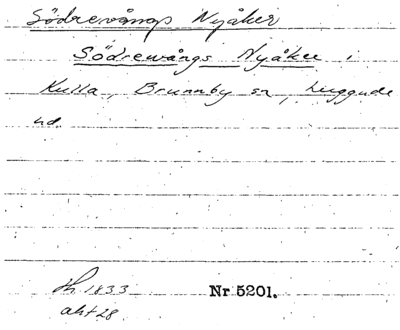 Södrevångs Nyåker
Södrewångs Nyåker i
Kulla, Brunnby sn, Luggude
hd.
Lh 1833
akt 28
Nr 5201.